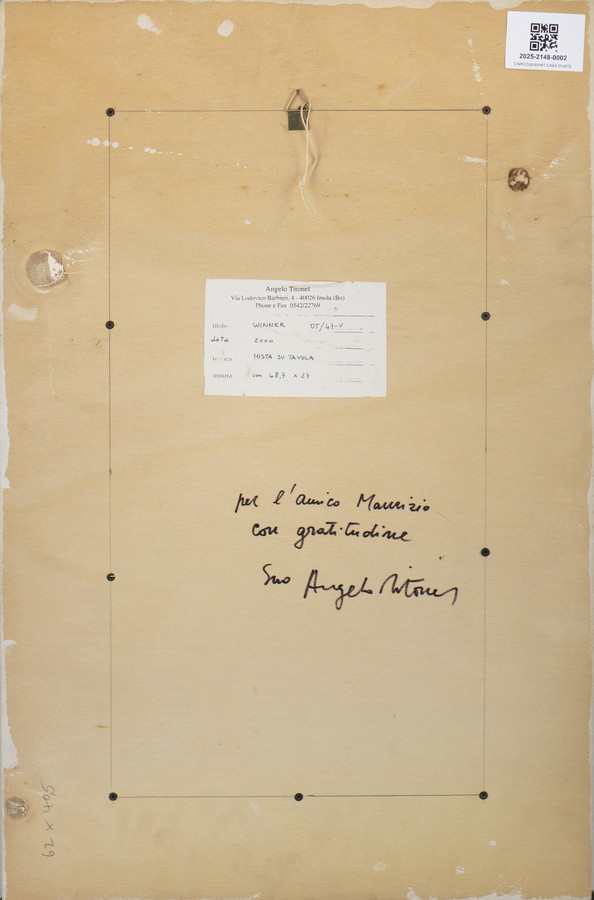 2025-2148-0002
CAPITOLIUMART CASA D'ASTE
Angelo Titonel
Via Lodovico Barbieri, 4 - 40026 Imola (Bo)
Phone e Fax 0542/22769
titolo WINNER OT/47-V
data 2000
tecnica MISTA SU TAVOLA
misura cm 68,7 x 27
per l'amico Maurizio
con gratitudine
Suo Angelo Titonel